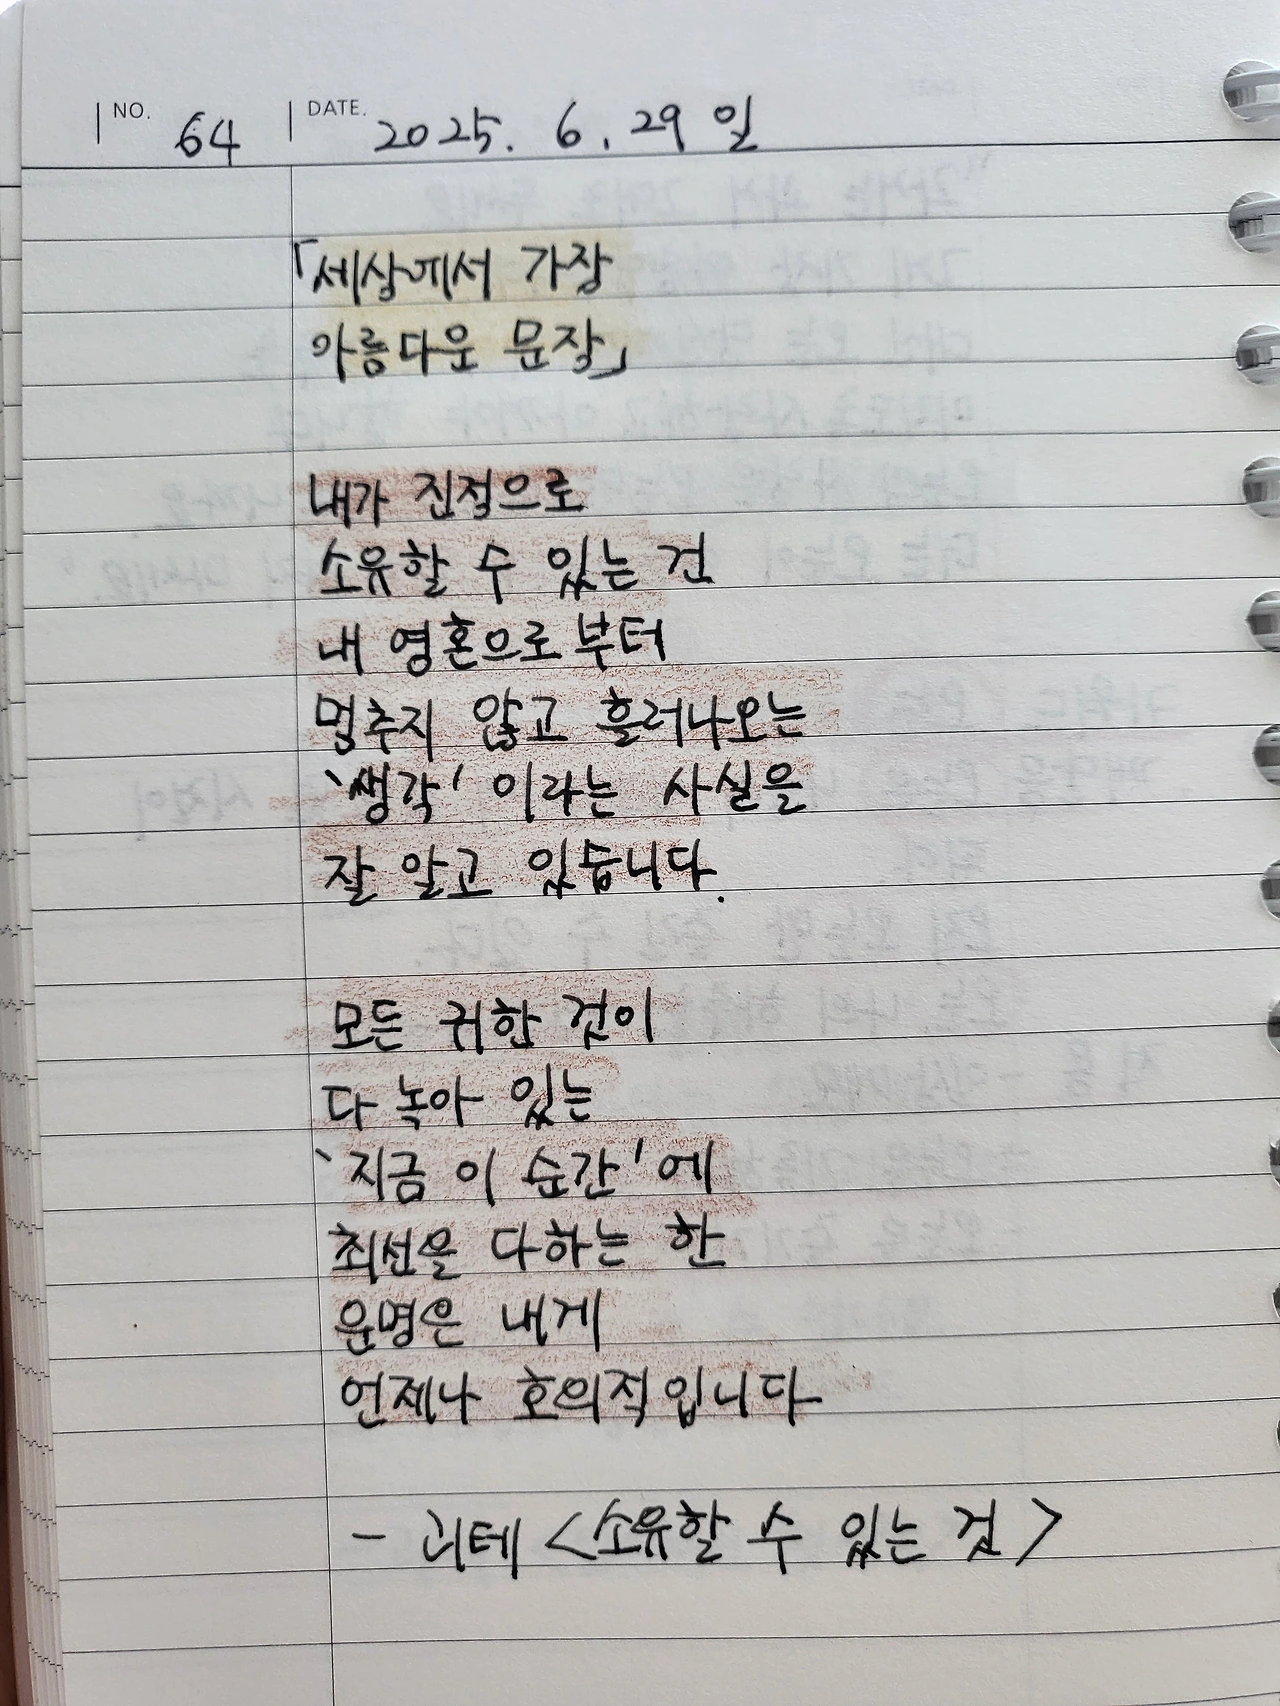 NO. 64 DATE. 2025. 6. 29 일
「세상에서 가장
아름다운 문장」
내가 진정으로
소유할 수 있는 건
내 영혼으로부터
멈추지 않고 흘러나오는
'생각' 이라는 사실을
잘 알고 있습니다.
모든 귀한 것이
다 녹아 있는
'지금 이 순간'에
최선을 다하는 한
운명은 내게
언제나 호의적입니다
- 괴테 <소유할 수 있는 것>